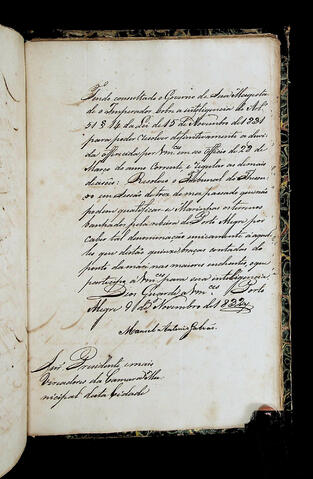 Tendo consultado o Governo de Sua Magesta
de o Imperador sobre a intelligencia do Art.
51 § 14 da Lei de 15 de Novembro de 1831
para poder resolver definitivamente a duvi
da offerecida por Vmces em seo officio de 23 de
Março do anno corrente, e regular as demais
decisões: Resolveo o Tribunal do Thesou
ro em Sessão de tres do mez passado que não
podem qualificar-se Marinhas os terrenos
banhados pela ribeira de Porto Alegre por
caber tal denominação unicamente áquel
les que distão quinze braças contados do
ponto da maré nas maiores enchentes, o que
participo a Vmces para sua intelligencia.
Deos Guarde a Vmces Porto
Alegre 9 de Novembro de 1832
Manoel Antonio Galvão
Snrs. Presidente, e mais
Vereadores da Camara Mu
nicipal desta Cidade